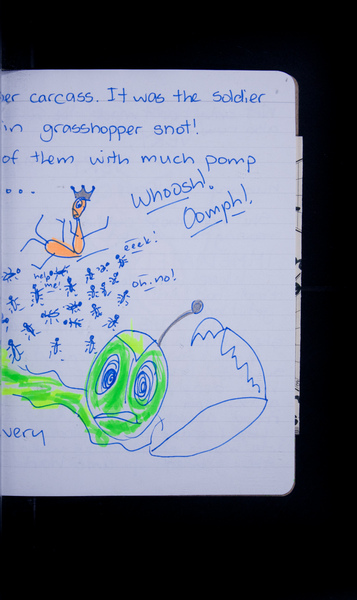 er carcass. It was the soldier
in grasshopper snot!
of them with much pomp
...
Whoosh!
Oomph!
eeek!
help me!
oh, no!
very